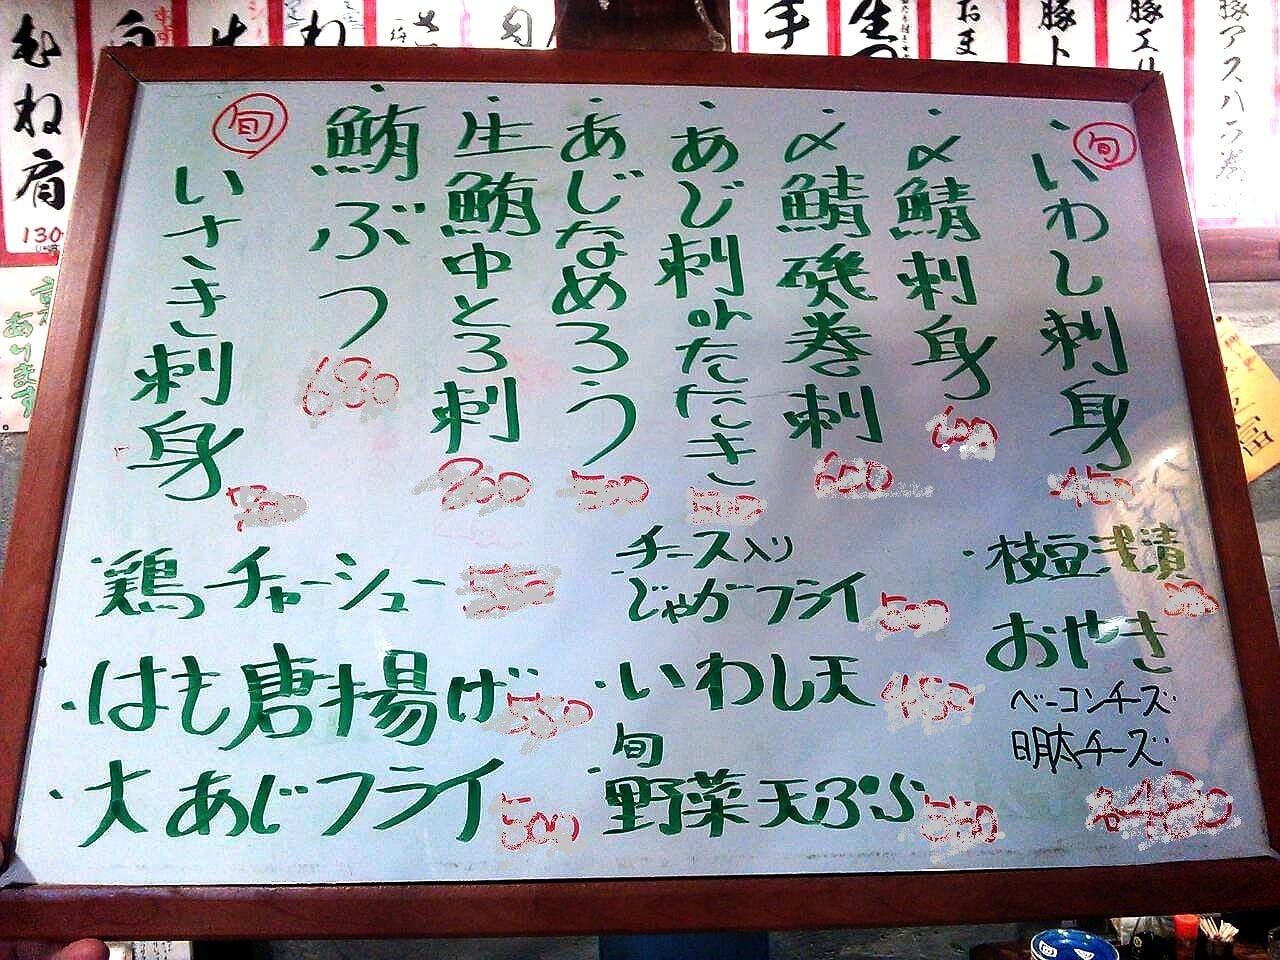 旬
いわし刺身
450
〆鯖刺身
600
〆鯖磯巻刺
650
あじ刺orたたき
500
あじなめろう
500
生鮪中とろ刺
800
鮪ぶつ
680
旬
いさき刺身
鶏チャーシュー
はも唐揚げ
550
大あじフライ
500
チーズ入り
じゃがフライ
500
いわし天
450
旬
野菜天ぷら
550
枝豆浅漬
おやき
ベーコンチーズ
明太チーズ
各480
むね肩
130
あります